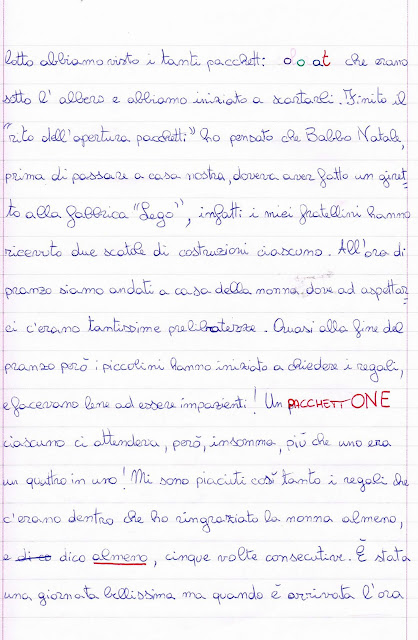 lotto abbiamo visto i tanti pacchetti che erano
sotto l'albero e abbiamo iniziato a scartarli. Finito il
"rito dell'apertura pacchetti" ho pensato che Babbo Natale,
prima di passare a casa nostra, doveva aver fatto un giret-
to alla fabbrica "Lego", infatti i miei fratellini hanno
ricevuto due scatole di costruzioni ciascuno. All'ora di
pranzo siamo andati a casa della nonna, dove ad aspettar-
ci c'erano tantissime prelibatezze. Quasi alla fine del
pranzo però i piccolini hanno iniziato a chiedere i regali,
e facevano bene ad essere impazienti! Un PACCHETTONE
ciascuno ci attendeva, però, insomma, più che uno era
un quattro in uno! Mi sono piaciuti così tanto i regali che
c'erano dentro che ho ringraziato la nonna almeno,
e di co dico almeno, cinque volte consecutive. È stata
una giornata bellissima ma quando è arrivata l'ora